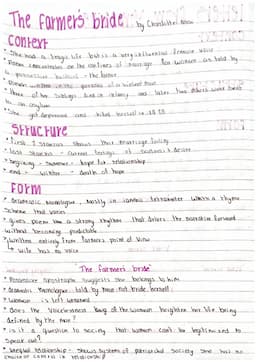 The farmer's bride by Charlotte Mew
Context
* She had a tragic life but is a very influential female voice
* Poem concentrates on the confines of marriage for women as told by
a protagonist - the farmer
* Poem written
* three of her siblings died in infancy and later two others were sent
to an asylum
* She got depressed and killed herself in 1928
Structure
* First stanzas shows their marriage
* last stanza - current feelings of farmer's desire
* beginning - summer - hope for relationship
* end - winter - death of hope
Form
* dramatic monologue, mostly in iambic tetrameter with a rhyme
scheme that varies
* gives poem a strong rhythm that drives the narrative forward
without becoming predictable
* written entirely from farmers point of view
- wife has no voice
The farmer's bride"
* Possessive apostrophe suggests she belongs to him
* dramatic monologue told by the man not bride herself
* Woman is left unnamed
* does the voicelessness of the woman heighten her life being
defined by the man?
* is it a question to society that women can't be legitimised to
speak out?
* relationship - shows system of patriarchal society she has no
choice or control in relationship